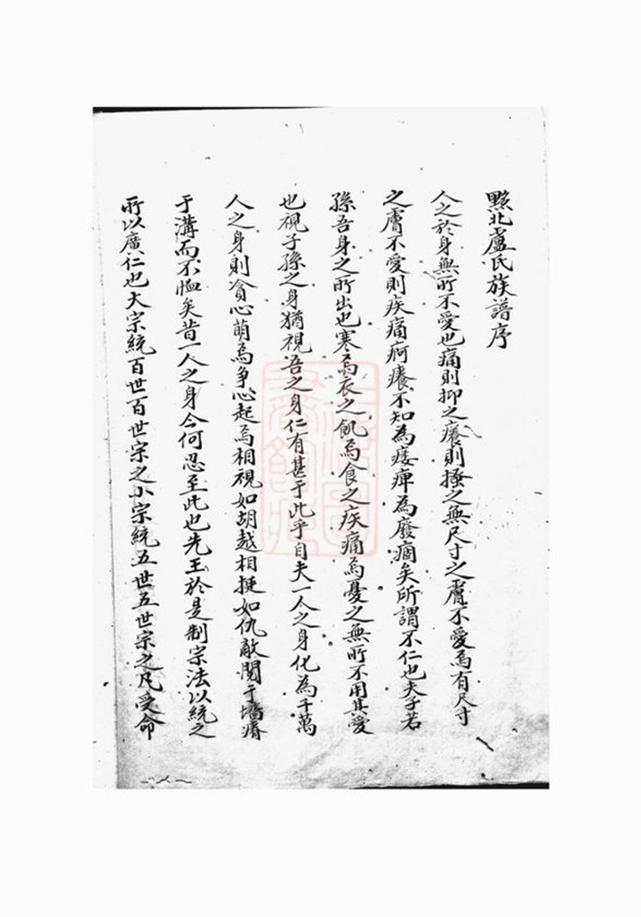 黟北盧氏族譜序
人之於身無所不愛也痛則抑之癢則搔之無尺寸之膚不愛焉有尺寸
之膚不愛則疾痛疴癢不知為痿痺為廢痼矣所謂不仁也夫子若
孫吾身之所出也寒焉衣之飢焉食之疾痛焉憂之無所不用其愛
也視子孫之身猶視吾之身仁有甚于此乎自夫一人之身化為千萬
人之身則貪心萌焉争心起焉相視如胡越相挺如仇敵鬩于墻瘠
于溝而不恤矣昔一人之身今何忍至此也先王於是制宗法以統之
所以廣仁也大宗統百世百世宗之小宗統五世五世宗之凡受命